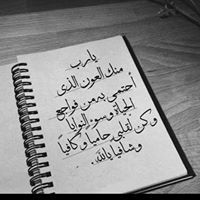 يارب
منك العون الذي
أحتمي به من فواجع
الحياة وسوء النوايا
وكن لقلبي حاميا وكافيا
وشافيا يالله